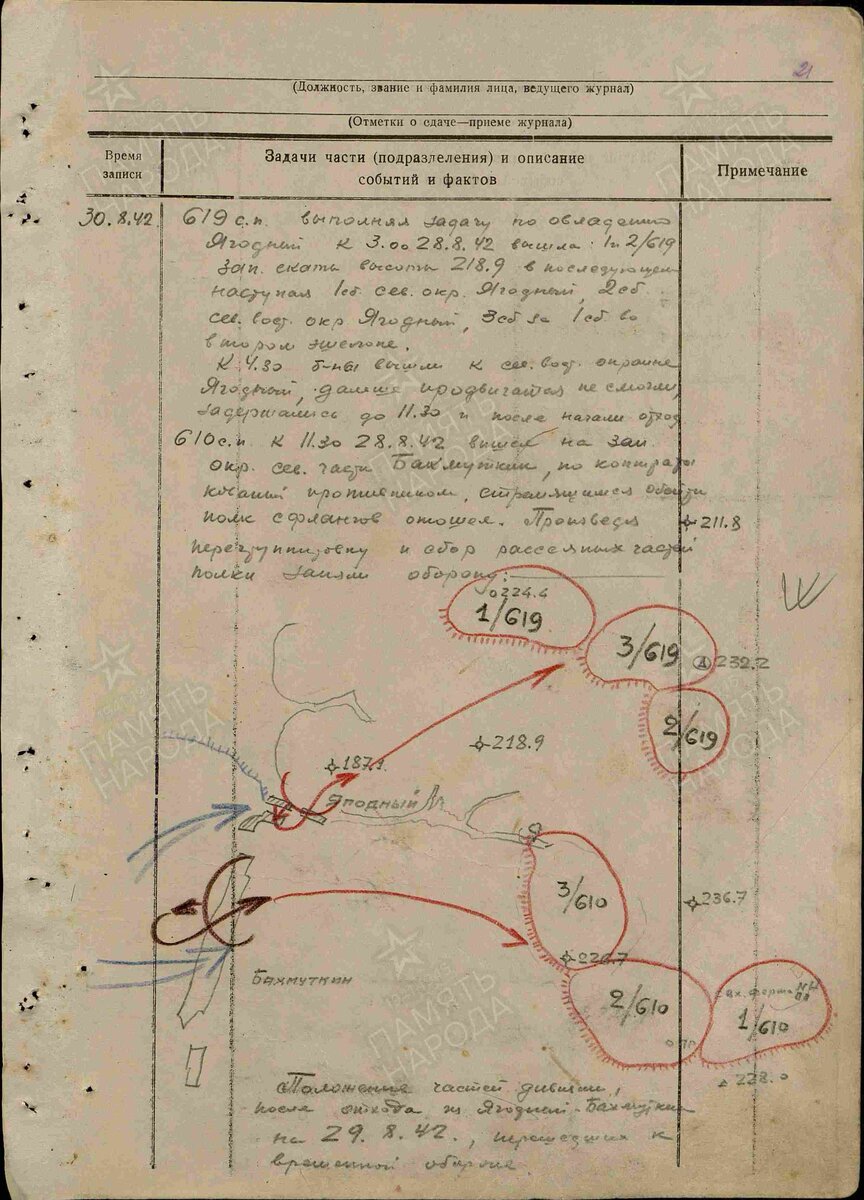 21
(Должность, звание и фамилия лица, ведущего журнал)
(Отметки о сдаче—приеме журнала)
Время записи
Задачи части (подразделения) и описание
событий и фактов
Примечание
30.8.42 619 с.п. выполняя задачу по овладению
Ягодный к 3.00 28.8.42 вышла 1 и 2/619
зап. скаты высоты 218.9 в последующем
наступая 1сб сев. окр. Ягодный, 2сб
сев. вост. окр Ягодный, 3сб за 1сб во
втором эшелоне.
К 4.30 б-ны вышли к сев. вост. окраине
Ягодный, дальше продвигаться не смогли,
задержались до 11.30 и после начали отход
610 с.п. к 11.30 28.8.42 вышел на зап.
окр. сев. части Бахмуткин, но контрата
кованный противником, стремящимся обойти
полк с флангов отошел. Произведя
перегруппировку и сбор рассеяных частей
полки заняли оборону.
211.8
224.4
1/619
3/619
232.2
2/619
218.9
187.1
Ягодный
3/610
236.7
226.7
Бахмуткин
2/610
1/610
228.0
Положение частей дивизии,
после отхода из Ягодный - Бахмуткин
на 29.8.42., перешедших к
временной обороне
ПАМЯТЬ
НАРОДА